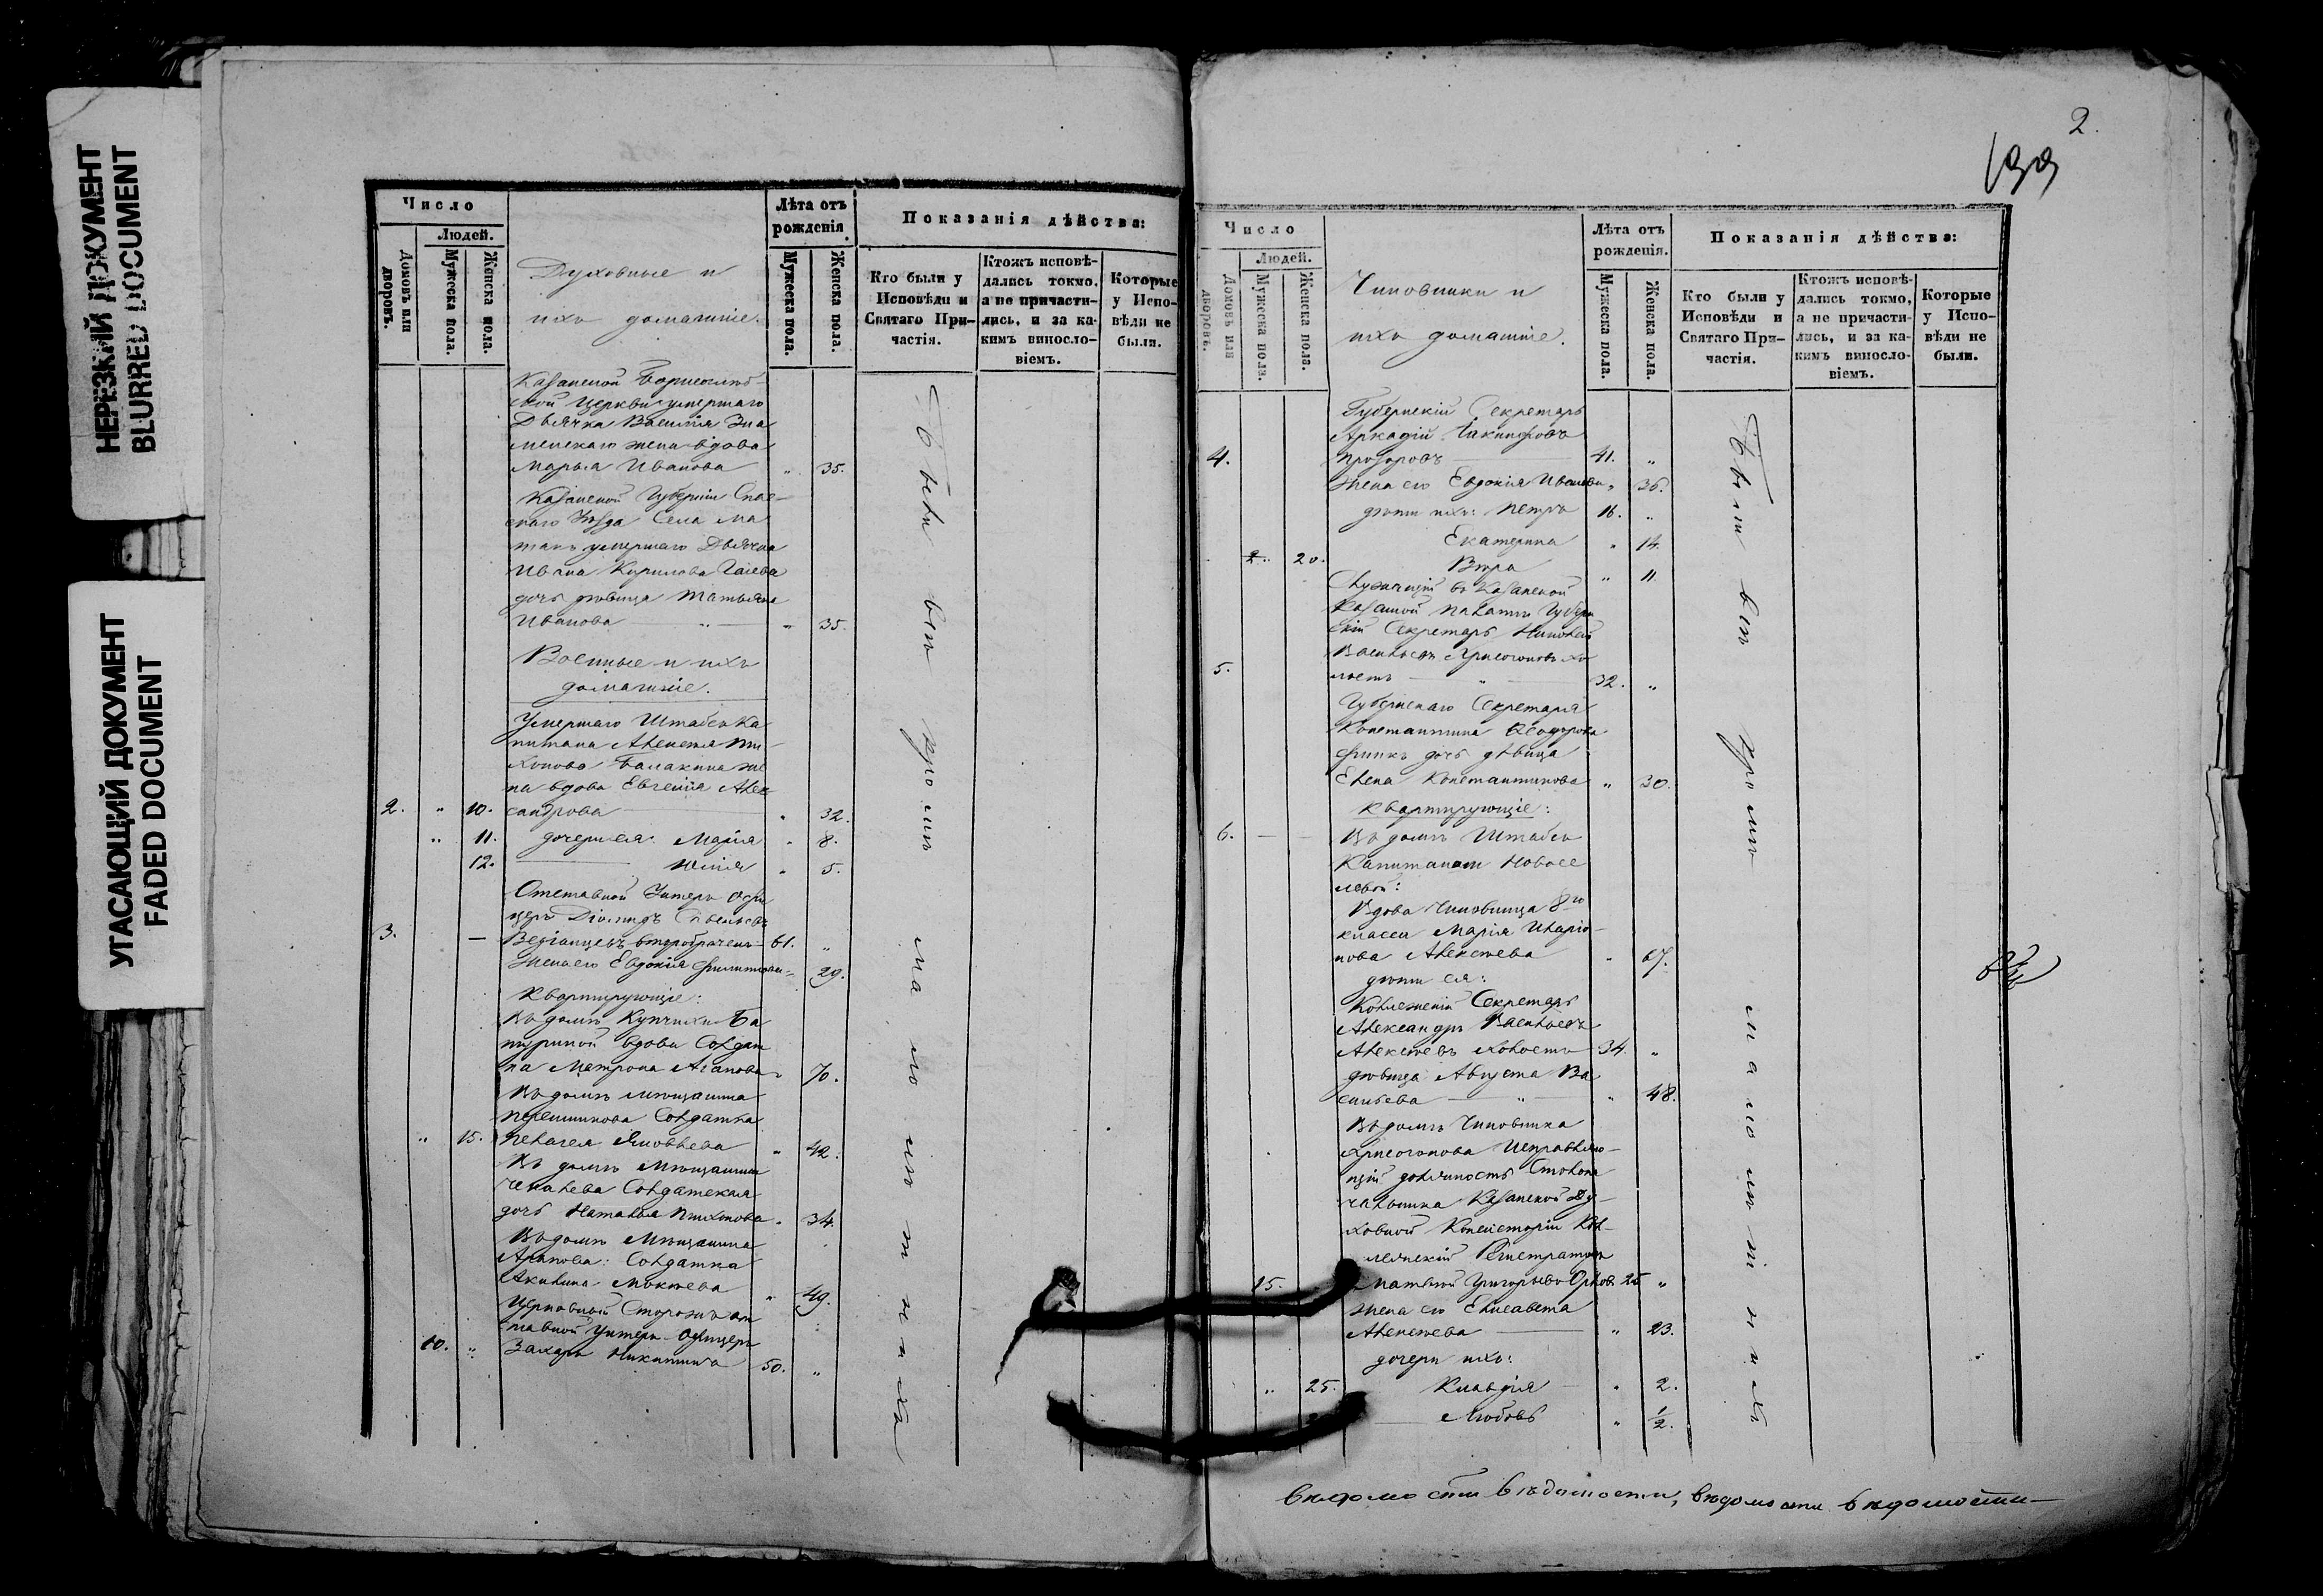 НЕРЕЗКИЙ ДОКУМЕНТ
BLURRED DOCUMENT
УГАСАЮЩИЙ ДОКУМЕНТ
FADED DOCUMENT
Число
Людей.
Домовъ или дворовъ.
Мужеска пола.
Женска пола.
Духовные и
ихъ домашніе.
Лѣта отъ
рожденія.
Мужеска пола.
Женска пола.
Показанія дѣйства:
Кто были у
Исповѣди и
Святаго При-
частія.
Ктожъ исповѣ-
дались токмо,
а не причасти-
лись, и за ка-
кимъ винослo-
віемъ.
Которые
у Испо-
вѣди не
были.
Казанской Борисоглѣб-
ской Церкви умершаго
Дьячка Василія Зна
менскаго жена вдова
Марья Иванова " 35.
Казанской Губерніи Спас-
скаго Уѣзда Села Ма
умершаго Дьячка
Ивана Кирилова
дочь дѣвица Татьяна
Иванова " " 35.
Военные и ихъ
домашніе.
Умершаго Штабсъ Ка
питана Алексѣя Ти
хонова Балакина же
на вдова Евгенія Алек
2. " 10. сандрова " 32.
" 11. дочери ея: Марія " 8.
12. Юлія " 5.
Отставной Унтеръ Офи
церъ
3. — 61. "
жена его Евдокія Филипова " 29.
Квартирующіе:
Въ домѣ Купчихи Ба
туриной вдова Солдат
ка Матрона Агапова " 70.
Въ домѣ мѣщанина
Солдатка
" 15. Пелагея Яковлева " 42.
Въ домѣ Мѣщанина
Чекалева Солдатская
дочь Наталья " 34.
Въ домѣ Мѣщанина
Агапова: Солдатка
Акилина Мокѣева " 49.
Церковный Сторожъ от
ставной Унтеръ-Офицеръ
10. " Захаръ Никитинъ 50. "
Были всѣ кромѣ малолѣтнихъ
2.
199
Число
Людей.
Домовъ или дворовъ.
Мужеска пола.
Женска пола.
Чиновники и
ихъ домашніе.
Лѣта отъ
рожденія.
Мужеска пола.
Женска пола.
Показанія дѣйства:
Кто были у
Исповѣди и
Святаго При-
частія.
Ктожъ исповѣ-
дались токмо,
а не причасти-
лись, и за ка-
кимъ винослo-
віемъ.
Которые
у Испо-
вѣди не
были.
Губернскій Секретарь
Аркадій Іакинфовъ
4. Прозоровъ 41. "
Жена его Евдокія Иванова " 36.
дѣти ихъ: Петръ 16. "
Екатерина " 14.
2. 20. Вѣра " 11.
Служащій въ Казанской
Казенной Палатѣ Губерн
скій Секретарь Николай
Васильевъ Хрисогоновъ хо
5. лостъ " 32. "
Губернскаго Секретаря
Константина Ѳеодорова
Финкъ дочь дѣвица
Елена Константинова " 30.
Квартирующіе:
6. — — Въ домѣ Штабсъ
Капитанши Новосе
ловой:
Вдова Чиновница 8го
класса Марія Иларіо-
нова Алексѣева " 67.
дѣти ея:
Коллежскій Секретарь
Александръ Васильевъ
Алексѣевъ холостъ 34. "
дѣвица Августа Ва
сильева " " 48.
Въ домѣ Чиновника
Хрисогонова Исправляю-
щій должность Столона
чальника Казанской Ду-
ховной Консисторіи Кол-
лежскій Регистраторъ
15. Матвѣй Григорьевъ Орловъ 25 "
Жена его Елисавета
Алексѣева " 23.
дочери ихъ:
" 25. Клавдія " 2.
Любовь " ½.
Были всѣ кромѣ малолѣтнихъ
вѣдомости вѣдомости, вѣдомости вѣдомости